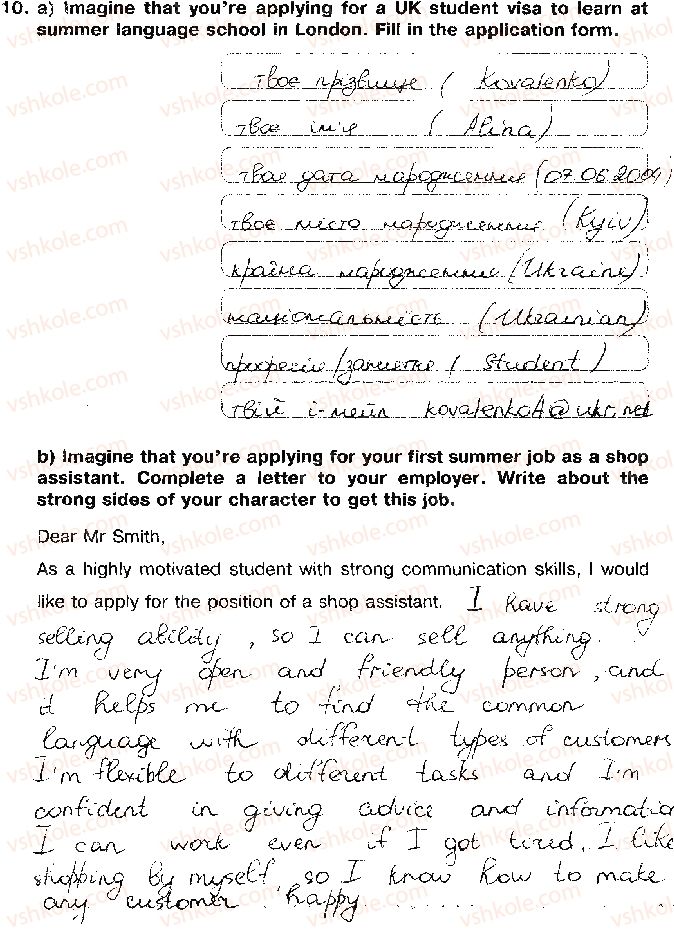 10. a) Imagine that you're applying for a UK student visa to learn at
summer language school in London. Fill in the application form.
твоє прізвище ( Kovalenko)
твоє ім'я ( Alina )
твоя дата народження (07.06.2004)
твоє місто народження (Kyiv)
країна народження (Ukraine)
національність (Ukrainian)
професія/заняття ( student )
твій і-мейл kovalenkoA@ukr.net
b) Imagine that you're applying for your first summer job as a shop
assistant. Complete a letter to your employer. Write about the
strong sides of your character to get this job.
Dear Mr Smith,
As a highly motivated student with strong communication skills, I would
like to apply for the position of a shop assistant. I have strong
selling ability, so I can sell anything.
I'm very open and friendly person, and
it helps me to find the common
language with different types of customers
I'm flexible to different tasks and I'm
confident in giving advice and informatio
I can work even if I got tired. I like
shopping by myself, so I know how to make
any customer happy.
vshkole.com